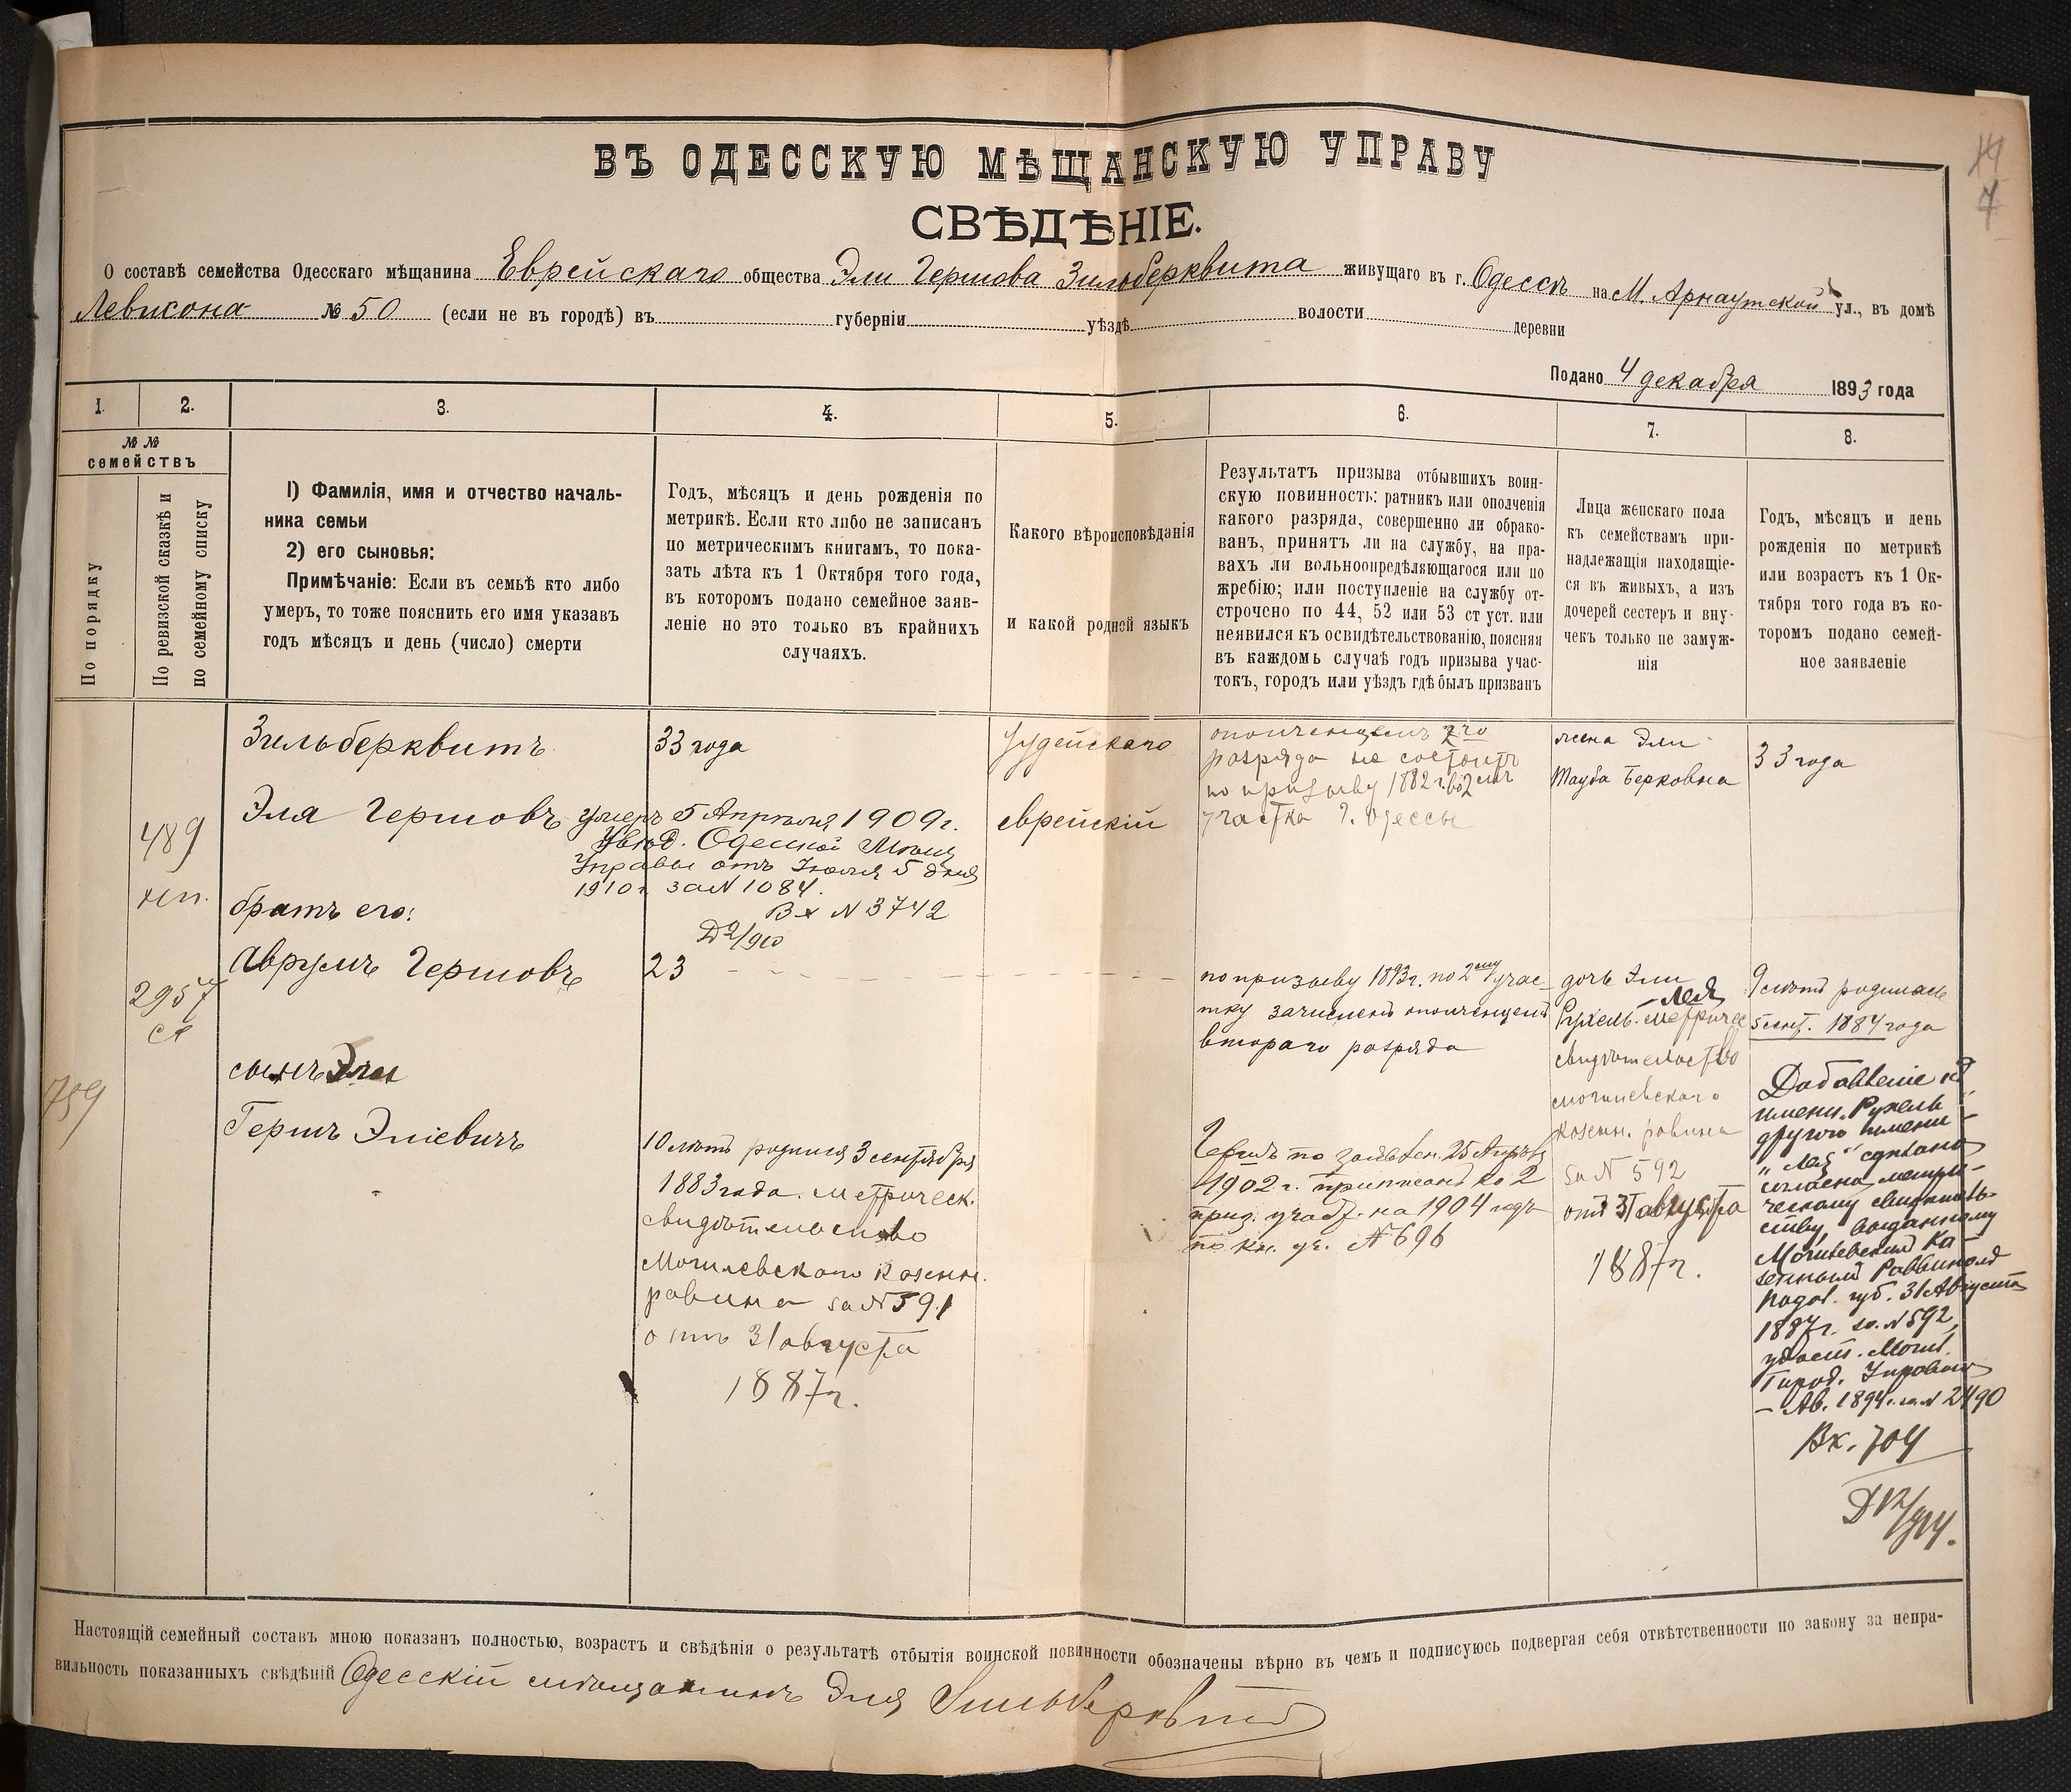 ВЪ ОДЕССКУЮ МѢЩАНСКУЮ УПРАВУ
СВѢДѢНІЕ.
О составѣ семейства Одесскаго мѣщанина Еврейскаго общества Эли Гершова Зильберквита живущаго въ г. Одессѣ на М. Арнаутской ул., въ домѣ
Левисона № 50 (если не въ городѣ) въ губерніи уѣздѣ волости деревни
Подано 4 декабря 1893 года
7
1. 2. 3. 4. 5. 6. 7. 8.
№ №
семействъ
По порядку
По ревизской сказкѣ и
по семейному списку
1) Фамилія, имя и отчество началь-
ника семьи
2) его сыновья:
Примѣчаніе: Если въ семьѣ кто либо
умеръ, то тоже пояснить его имя указавъ
годъ мѣсяцъ и день (число) смерти
Годъ, мѣсяцъ и день рожденія по
метрикѣ. Если кто либо не записанъ
по метрическимъ книгамъ, то пока-
зать лѣта къ 1 Октября того года,
въ которомъ подано семейное заяв-
леніе но это только въ крайнихъ
случаяхъ.
Какого вѣроисповѣданія
и какой родной языкъ
Результатъ призыва отбывшихъ воин-
скую повинность: ратникъ или ополченія
какого разряда, совершенно ли обрако-
ванъ, принятъ ли на службу, на пра-
вахъ ли вольноопредѣляющагося или по
жребію; или поступленіе на службу от-
строчено по 44, 52 или 53 ст уст. или
неявился къ освидѣтельствованію, поясняя
въ каждомъ случаѣ годъ призыва учас-
токъ, городъ или уѣздъ гдѣ былъ призванъ
Лица женскаго пола
къ семействамъ при-
надлежащія находящіе-
ся въ живыхъ, а изъ
дочерей сестеръ и вну-
чекъ только не замуж-
нія
Годъ, мѣсяцъ и день
рожденія по метрикѣ
или возрастъ къ 1 Ок-
тября того года въ ко-
торомъ подано семей-
ное заявленіе
759
489
2957
Зильберквитъ
Эля Гершовъ
братъ его:
Аврумъ Гершовъ
сынъ Эли
Гершъ Эліевичъ
33 года
умеръ 5 Апрѣля 1909 г.
Увѣд. Одесской Мѣщ.
Управы отъ Іюля 5 дня
1910 г. за № 1084.
Вх № 3742
Д 2/910
23
10 лѣтъ родился 3 сентября
1883 года. метрическ.
свидѣтельство
Могилевскаго казенн.
равина за № 591
отъ 31 августа
1887 г.
Іудейскаго
еврейскій
разряда не состоитъ
по призыву 1882 г. во 2мъ
участка г. Одессы
по призыву 1893 г. по 2му учас-
тку зачисленъ ополченцемъ
второго разряда
Гершъ по 25 Апрѣля
1902 г. приписанъ ко 2
приз. участ. на 1904 годъ
по кн. уч. № 696
жена Эли
Тауба Берковна
дочь Эли
Лея
Рухель. метричес
свидѣтельство
могилевскаго
казенн. равина
за № 592
отъ 31 августа
1887 г.
33 года
9 лѣтъ родилась
5 сент. 1884 года
Добавленіе къ
имени Рухель
другого имени
„Лея" сдѣлано
согласно метри-
ческому свидѣтель-
ству, выданному
Могилевскимъ Ка-
зеннымъ Раввиномъ
Подол. губ. 31 Августа
1887 г. за № 592,
Город. Управою
Ав. 1894 г. за № 2490
Вх. 704
Настоящій семейный составъ мною показанъ полностью, возрастъ и свѣдѣнія о результатѣ отбытія воинской повинности обозначены вѣрно въ чемъ и подписуюсь подвергая себя отвѣтственности по закону за непра-
вильность показанныхъ свѣдѣній Одесскій мѣщанинъ Эля Зильберквитъ